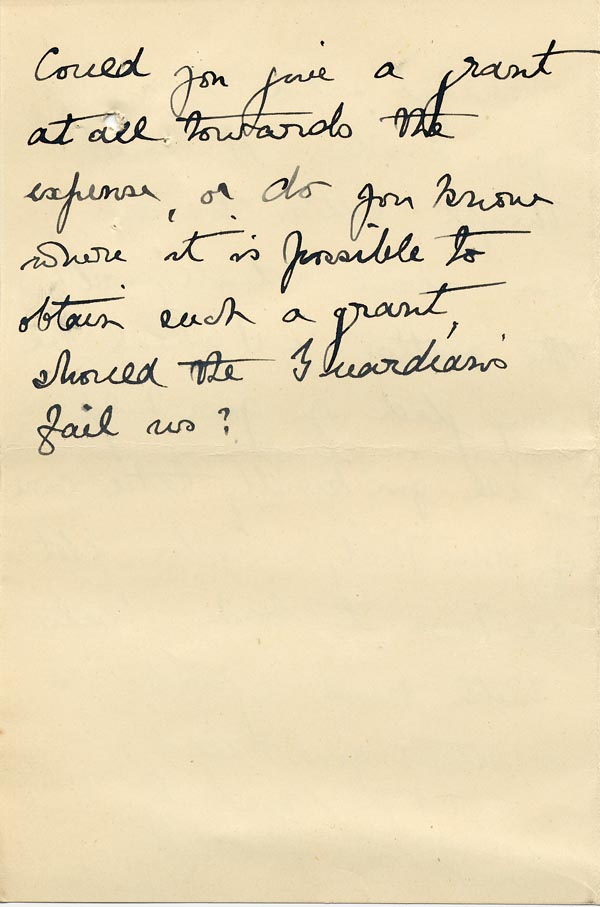 Could you give a grant
at all towards the
expense, or do you know
where it is possible to
obtain such a grant,
should the Guardians
fail us?